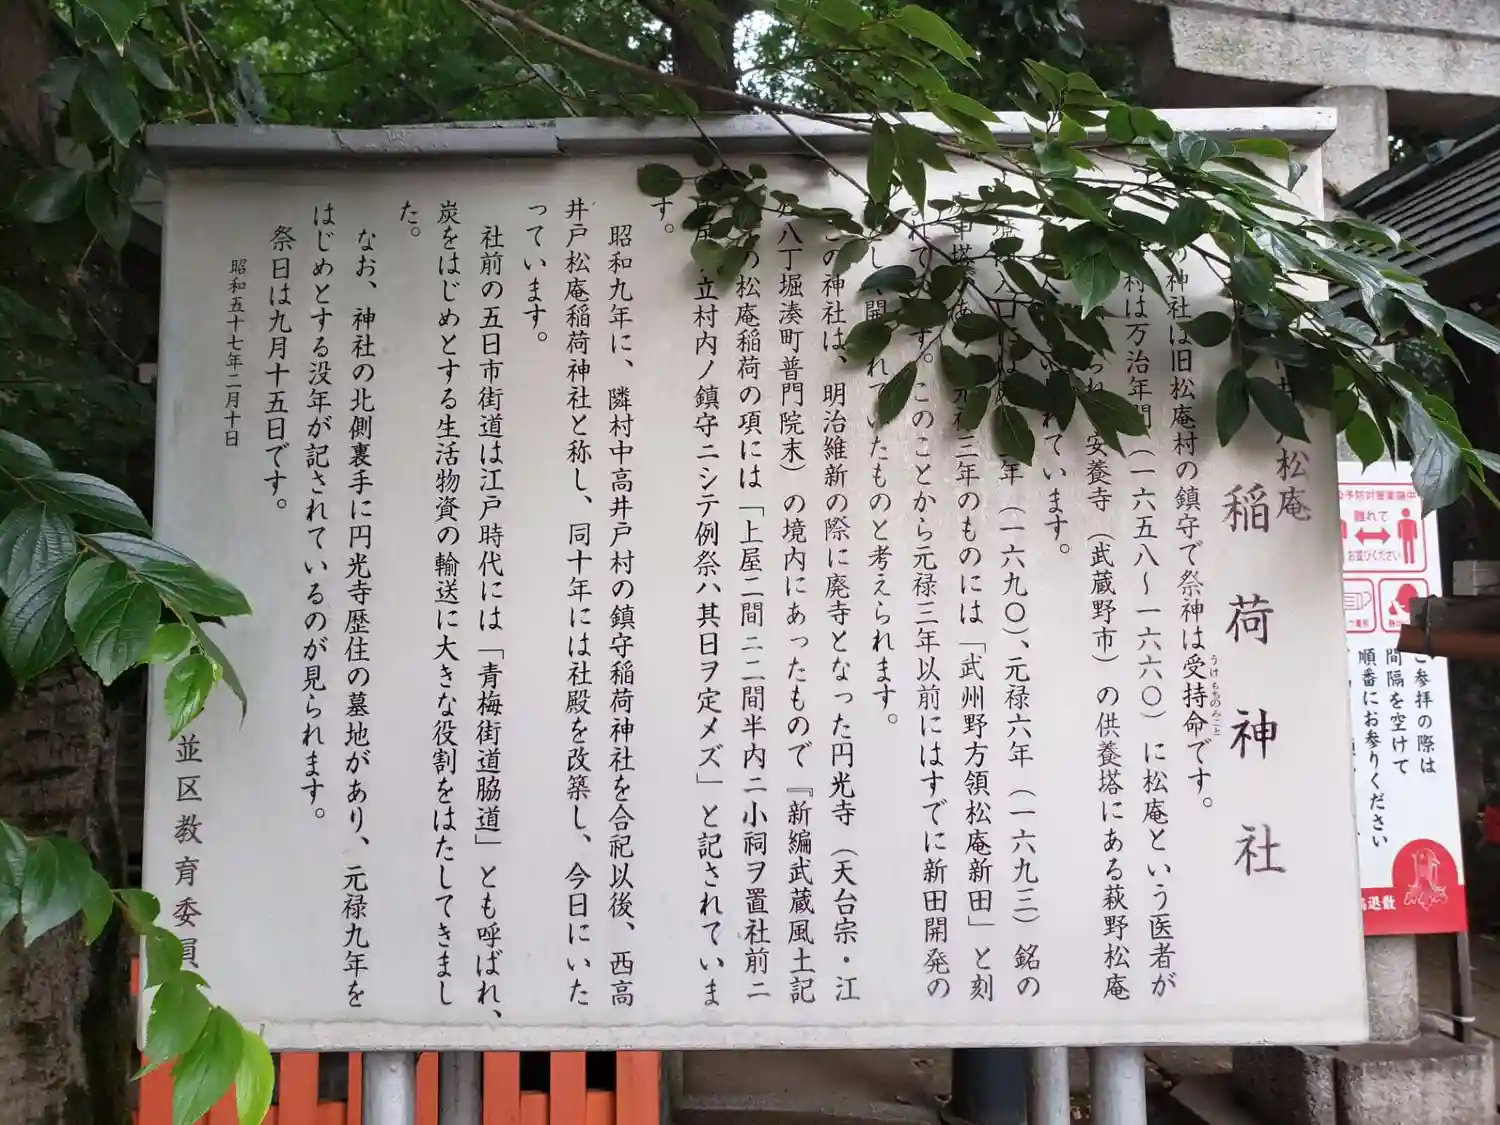 松庵
稲荷神社
神社は旧松庵村の鎮守で祭神は受持命です。
うけもちのみこと
村は万治年間(一六五八〜一六六〇)に松庵という医者が
安養寺(武蔵野市)の供養塔にある萩野松庵
れています。
年(一六九〇)、元禄六年(一六九三)銘の
三年のものには「武州野方領松庵新田」と刻
す。このことから元禄三年以前にはすでに新田開発の
開 れていたものと考えられます。
この神社は、明治維新の際に廃寺となった円光寺(天台宗・江
八丁堀湊町普門院末)の境内にあったもので『新編武蔵風土記
の松庵稲荷の項には「上屋二間ニ二間半内ニ小祠ヲ置社前ニ
立村内ノ鎮守ニシテ例祭ハ其日ヲ定メズ」と記されていま
す。
昭和九年に、隣村中高井戸村の鎮守稲荷神社を合祀以後、西高
井戸松庵稲荷神社と称し、同十年には社殿を改築し、今日にいた
っています。
社前の五日市街道は江戸時代には「青梅街道脇道」とも呼ばれ、
炭をはじめとする生活物資の輸送に大きな役割をはたしてきまし
た。
なお、神社の北側裏手に円光寺歴住の墓地があり、元禄九年を
はじめとする没年が記されているのが見られます。
祭日は九月十五日です。
昭和五十七年二月十日
並区教育委員
予防対策実施中
離れて
お並びください
ご参拝の際は
間隔を空けて
順番にお参りください
退散